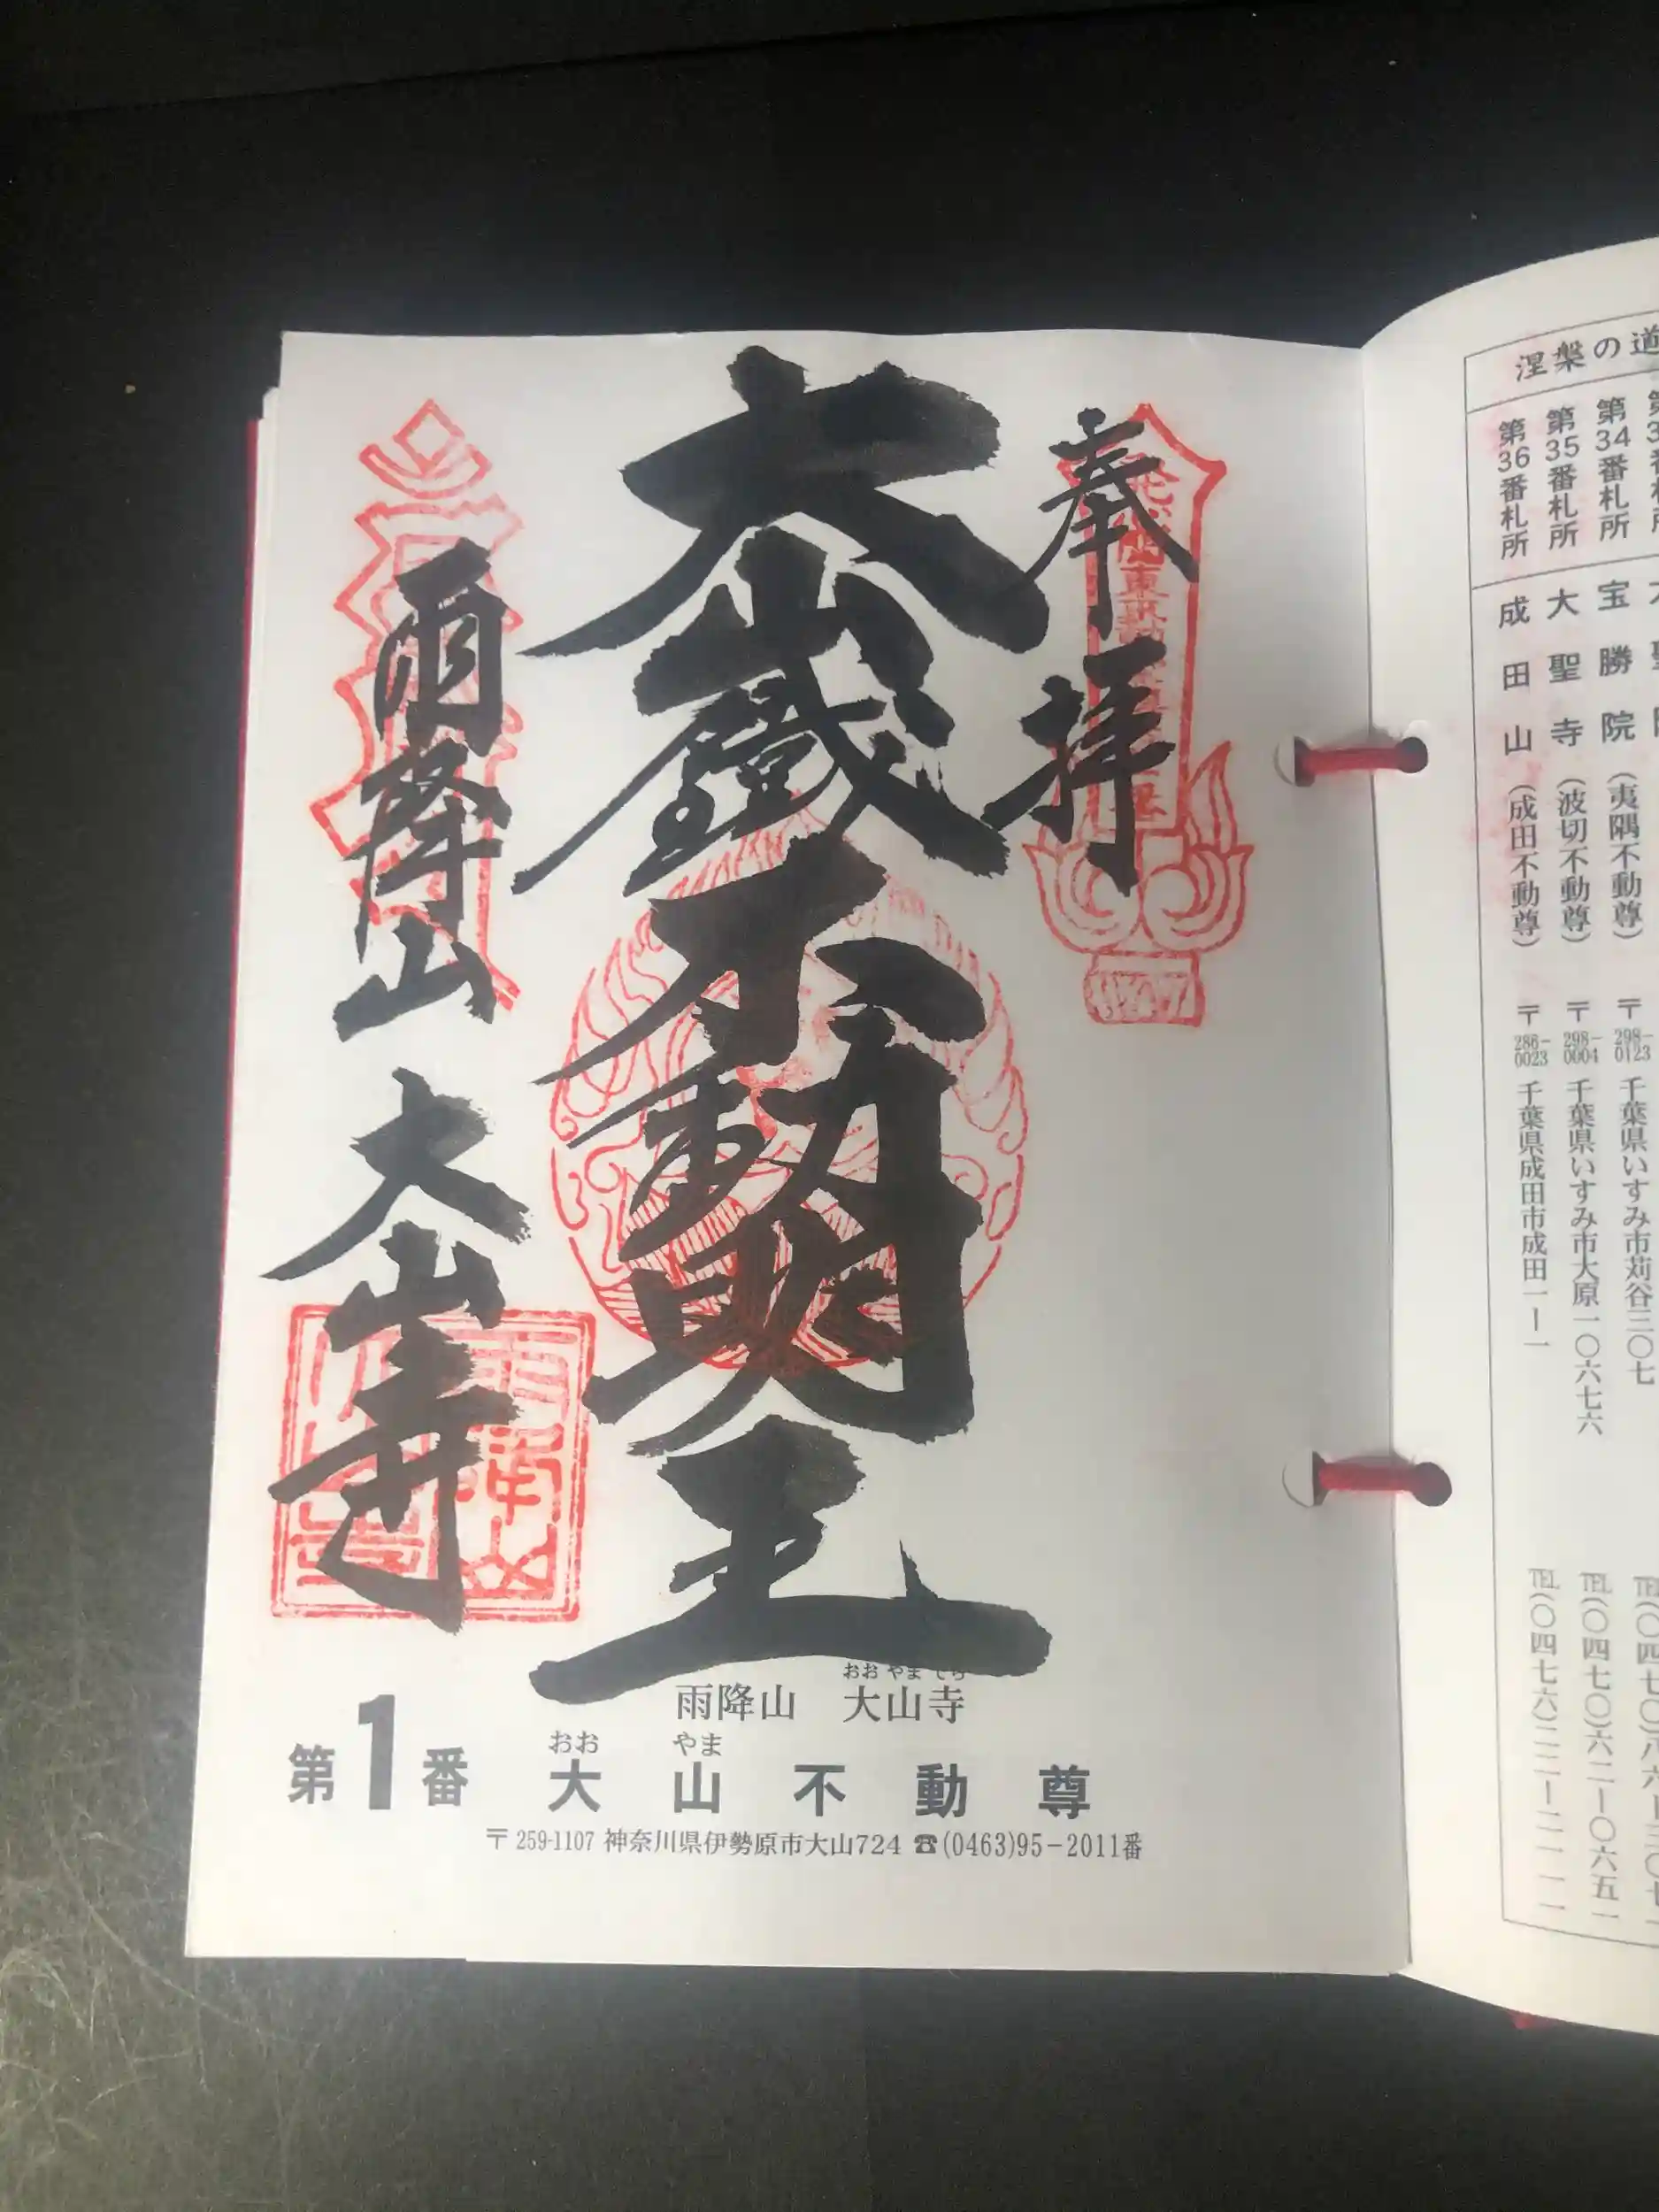 奉拝
大山鐵不動明王
雨降山 大山寺
雨降山 大山寺
おおやまでら
第1番 大山不動尊
おお やま
〒259-1107 神奈川県伊勢原市大山724 ☎(0463)95-2011番
涅槃の道
第34番札所 宝勝院(夷隅不動尊) 〒298-0123 千葉県いすみ市苅谷三〇七
第35番札所 大聖寺(波切不動尊) 〒298-0004 千葉県いすみ市大原一〇六七六 TEL(〇四七〇)六二ー〇六五一
第36番札所 成田山(成田不動尊) 〒286-0023 千葉県成田市成田一ー一 TEL(〇四七六)二二ー二一一一